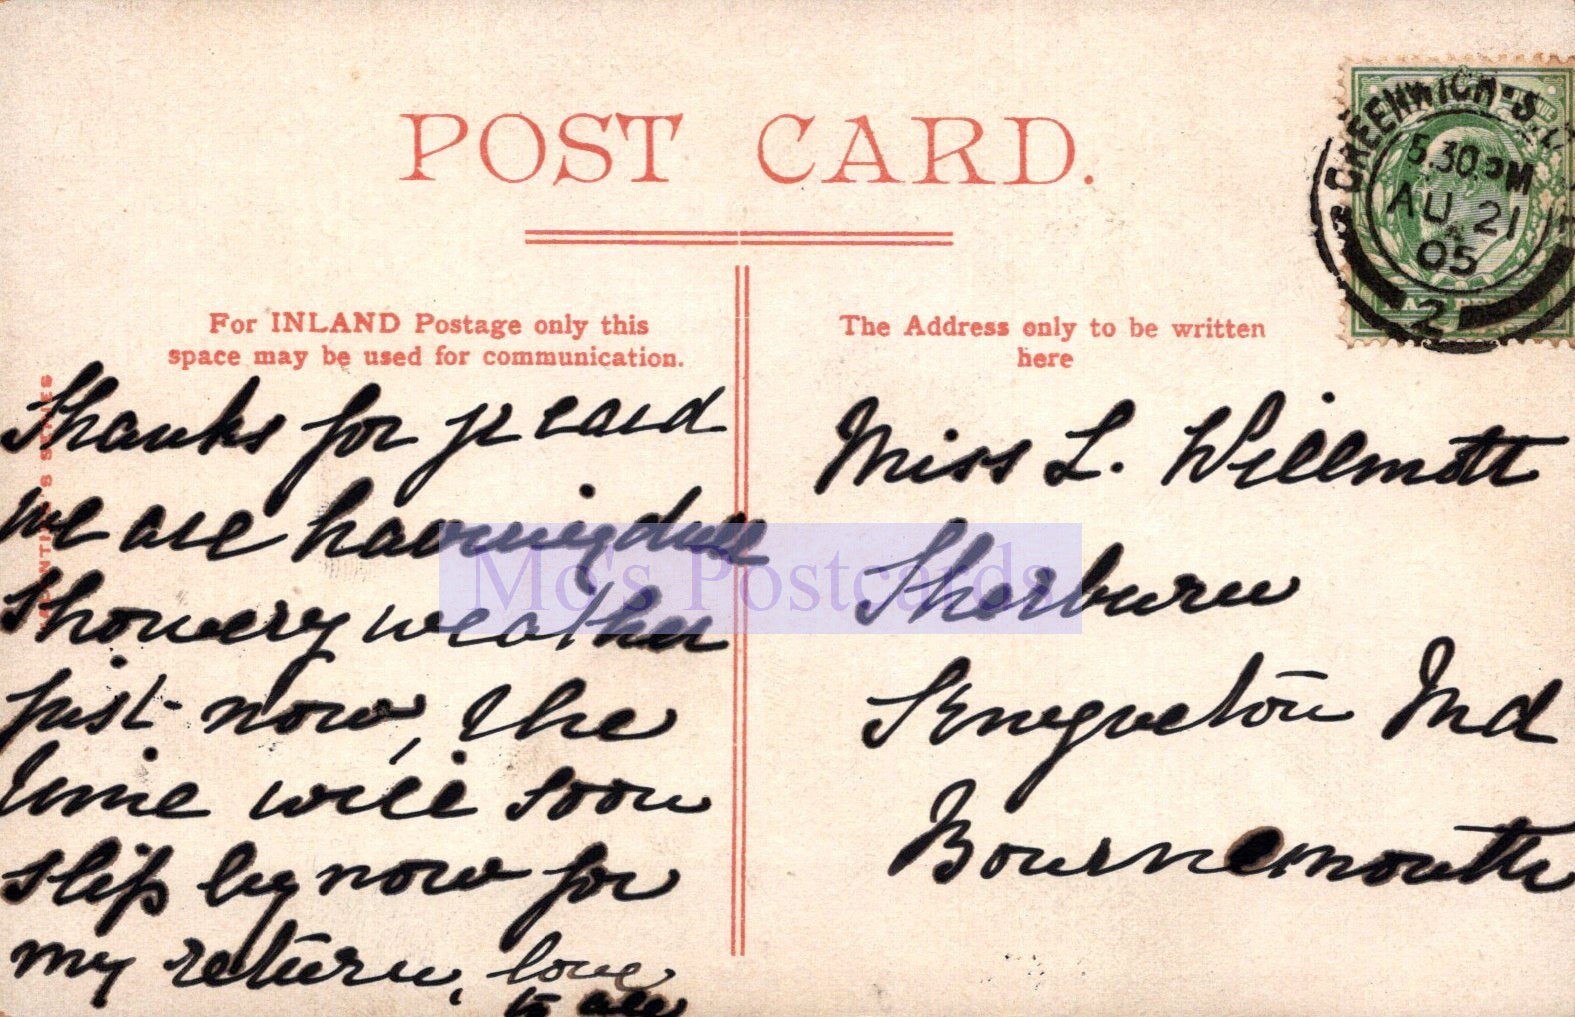 POST CARD.
For INLAND Postage only this
space may be used for communication.
The Address only to be written
here
GREENWICH·S.E
5.30 PM
AU 21
05
2
Thanks for p card
we are having dull
showery weather
just now, the
time will soon
slip by now for
my return, love
to all
Miss L. Willmott
Sherburn
Knyveton Rd
Bournemouth
Mo's Postcards